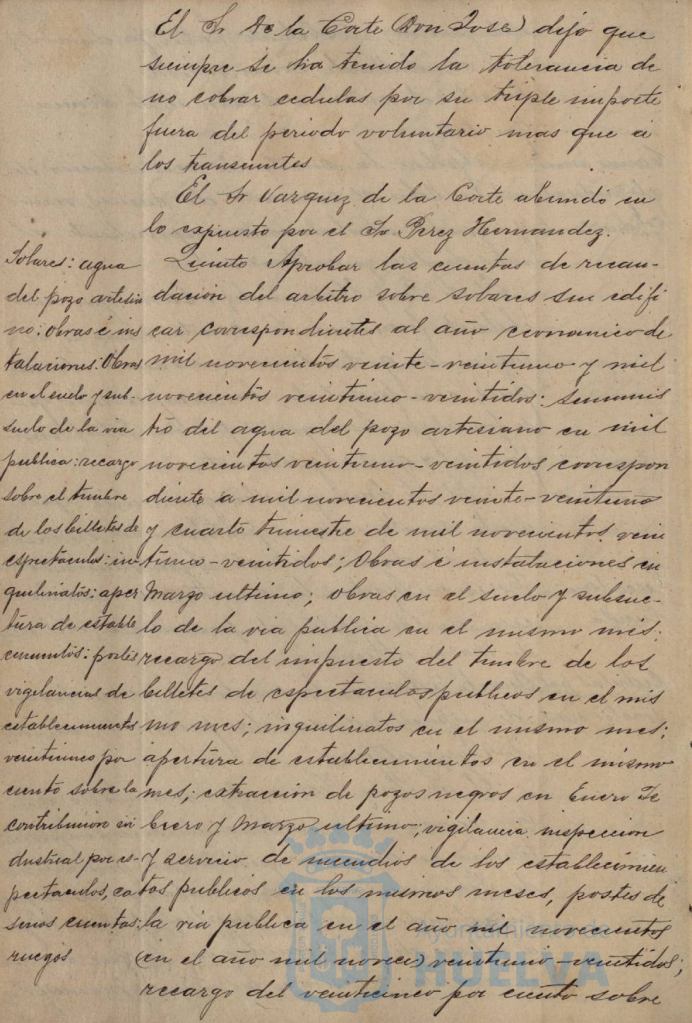 El Sr De la Corte (Don Jose) dijo que
siempre se ha tenido la tolerancia de
no cobrar cedulas por su triple importe
fuera del periodo voluntario mas que a
los transeuntes
El Sr Vazquez de la Corte abundó en
lo expuesto por el Sr Perez Hernandez.
Quinto Aprobar las cuentas de recau-
dación del arbitro sobre solares sin edifi
car correspondinetes al año economico de
mil novecientos veinte-veintiuno y mil
novecientos veintiuno-veintidos: suminis
tro del agua del pozo artesiano en mil
novecientos veintiuno-veintidos correspon
diente á mil novecientos veinte-veintiuno
y cuarto trimestre de mil novecientos vein
tiuno-veintidos; Obras é instalaciones en
Marzo ultimo; obras en el suelo y subsue-
lo de la via publica en el mismo mes:
recargo del impuesto del timbre de los
billetes de espectaculos publicos en el mis
mo mes; inquilinatos en el mismo mes;
apertura de establecimientos en el mismo
mes; extracción de pozos negros en Enero Fe
brero y Marzo ultimo; vigilancia inspeccion
y servicio de incendios de los establecimien
tos publicos en los mismos meses, postes de
la via publica en el año mil novecientos
(en el año mil novec) veintiuno-veintidos;
recargo del veinticinco por ciento sobre
Solares: agua
del pozo artesia
no: obras é ins
talaciones: Obras
en el suelo y sub-
suelo de la via
publica: recargo
sobre el timbre
de los billetes de
espectaculos: in-
quilinatos: aper
tura de estable
cimientos: postes
vigilancias de
establecimientos
veinticinco por
ciento sobre la
contribucion in
dustrial por es-
pectaculos, ca
sinos cuentas:
ruegos
HUELVA